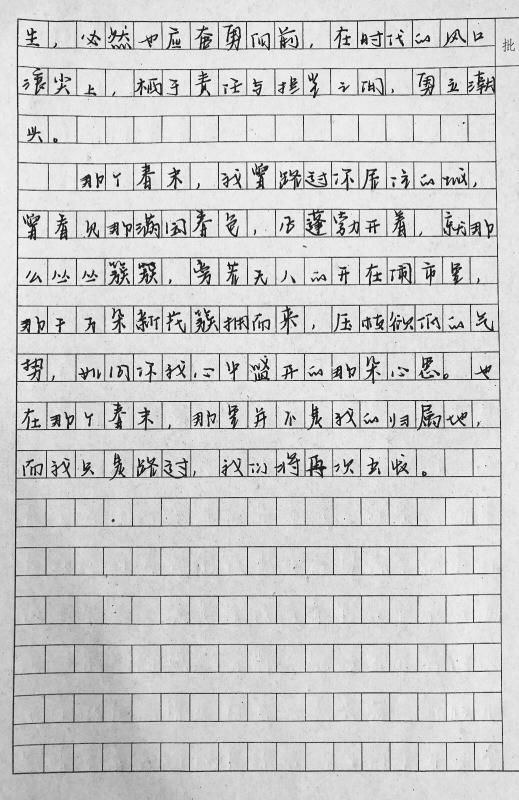 批
生，必然也应奋勇向前，在时代的风口
浪尖上，栖于责任与担当之间，勇立潮
头。
那个春末，我曾路过你居住的城，
曾看见那满园春色，正蓬勃开着，就那
么丛丛簇簇，旁若无人的开在闹市里，
那千万朵新花簇拥而来，压枝欲低的气
势，如同你我心中盛开的那朵心思。也
在那个春末，那里并不是我的归属地，
而我只是路过，我们将再次出发。